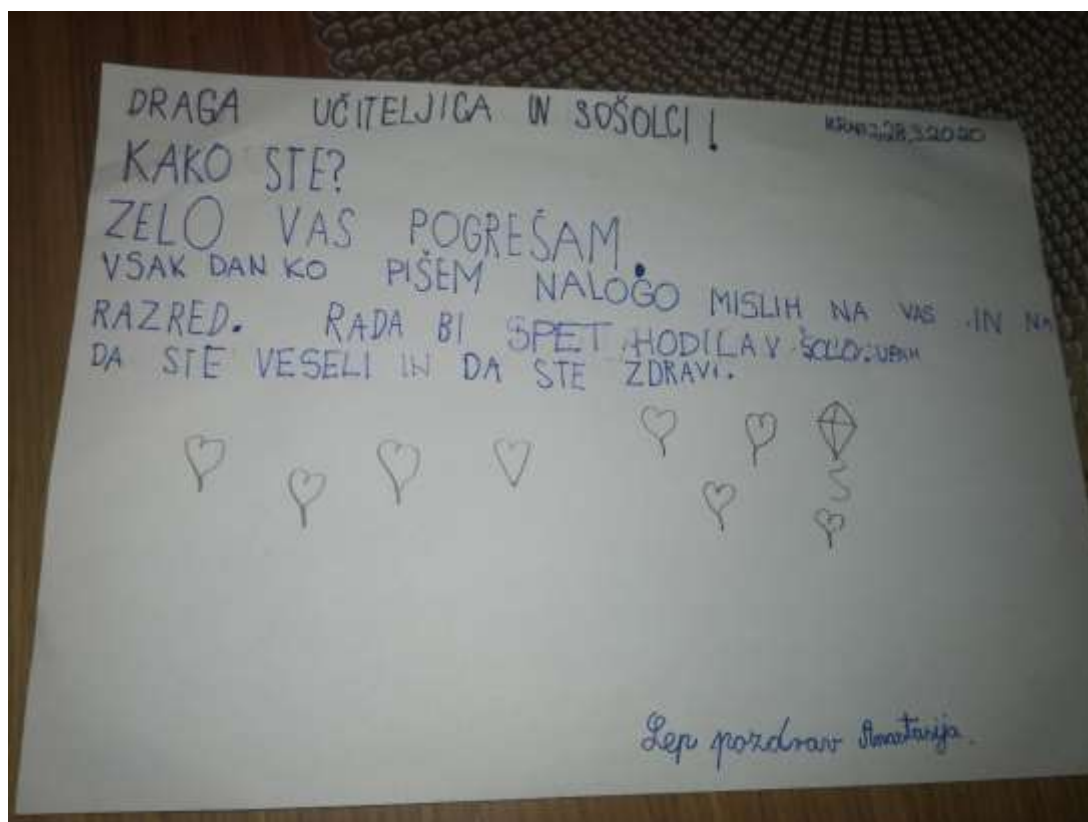 DRAGA UČITELJICA IN SOŠOLCI! 28.3.2020
KAKO STE?
ZELO VAS POGREŠAM.
VSAK DAN KO PIŠEM NALOGO MISLIH NA VAS IN NA
RAZRED. RADA BI SPET HODILA V ŠOLO. UPAM
DA STE VESELI IN DA STE ZDRAVI.
Lep pozdrav Anastasija.